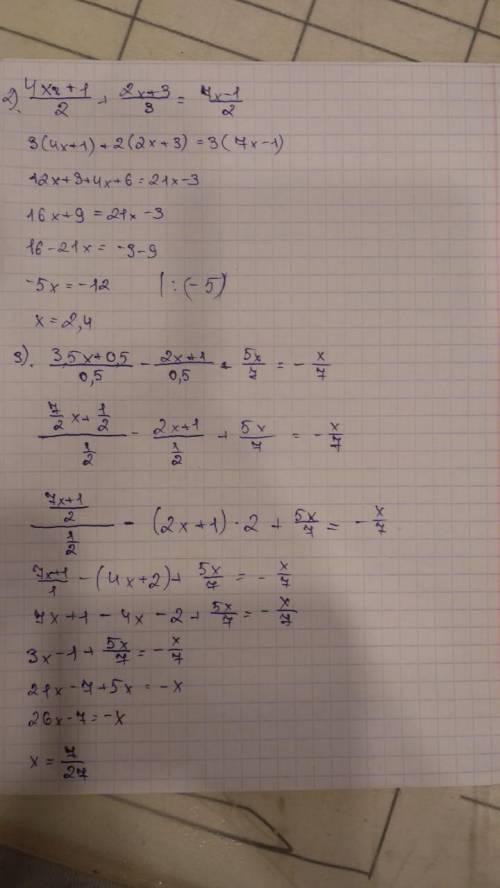 2) (4x+1)/2 + (2x+3)/3 = (7x-1)/2
3(4x+1)+2(2x+3)=3(7x-1)
12x+3+4x+6=21x-3
16x+9=21x-3
16-21x=-3-9
-5x=-12 |:(-5)
x=2,4
3). (3,5x+0,5)/0,5 - (2x+1)/0,5 + 5x/7 = -x/7
(7/2x+1/2)/(1/2) - (2x+1)/(1/2) + 5x/7 = -x/7
((7x+1)/2)/(1/2) - (2x+1)·2 + 5x/7 = -x/7
(7x+1)/1 - (4x+2) + 5x/7 = -x/7
7x+1-4x-2+5x/7=-x/7
3x-1+5x/7=-x/7
21x-7+5x=-x
26x-7=-x
x=7/27